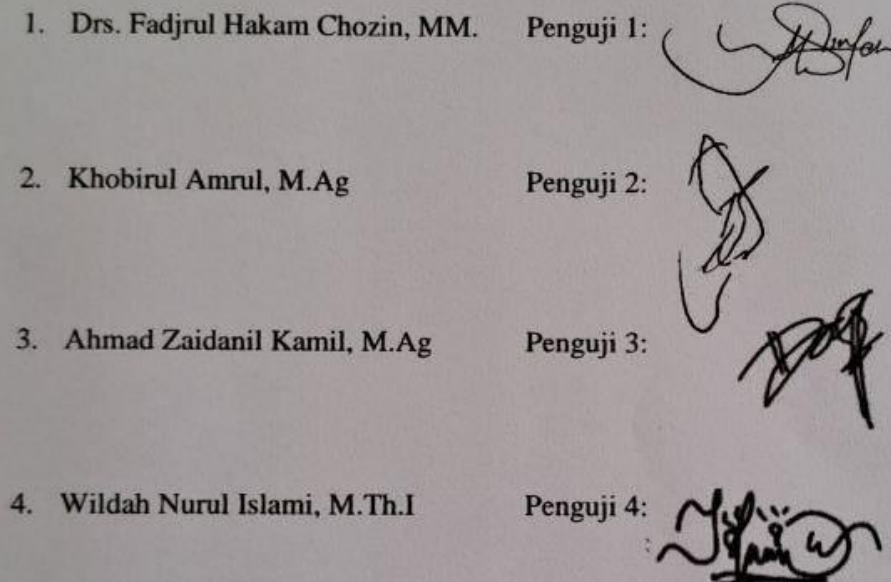 1. Drs. Fadjrul Hakam Chozin, MM. Penguji 1:
2. Khobirul Amrul, M.Ag Penguji 2:
3. Ahmad Zaidanil Kamil, M.Ag Penguji 3:
4. Wildah Nurul Islami, M.Th.I Penguji 4: